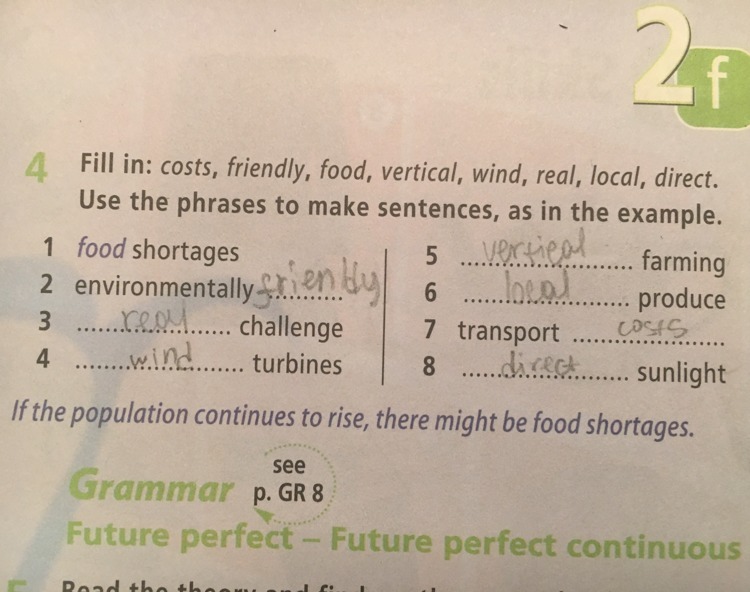 2f
4 Fill in: costs, friendly, food, vertical, wind, real, local, direct.
Use the phrases to make sentences, as in the example.
1 food shortages
2 environmentally friendly
3 real challenge
4 wind turbines
5 vertical farming
6 local produce
7 transport costs
8 direct sunlight
If the population continues to rise, there might be food shortages.
Grammar see p. GR 8
Future perfect – Future perfect continuous
Read the theory and